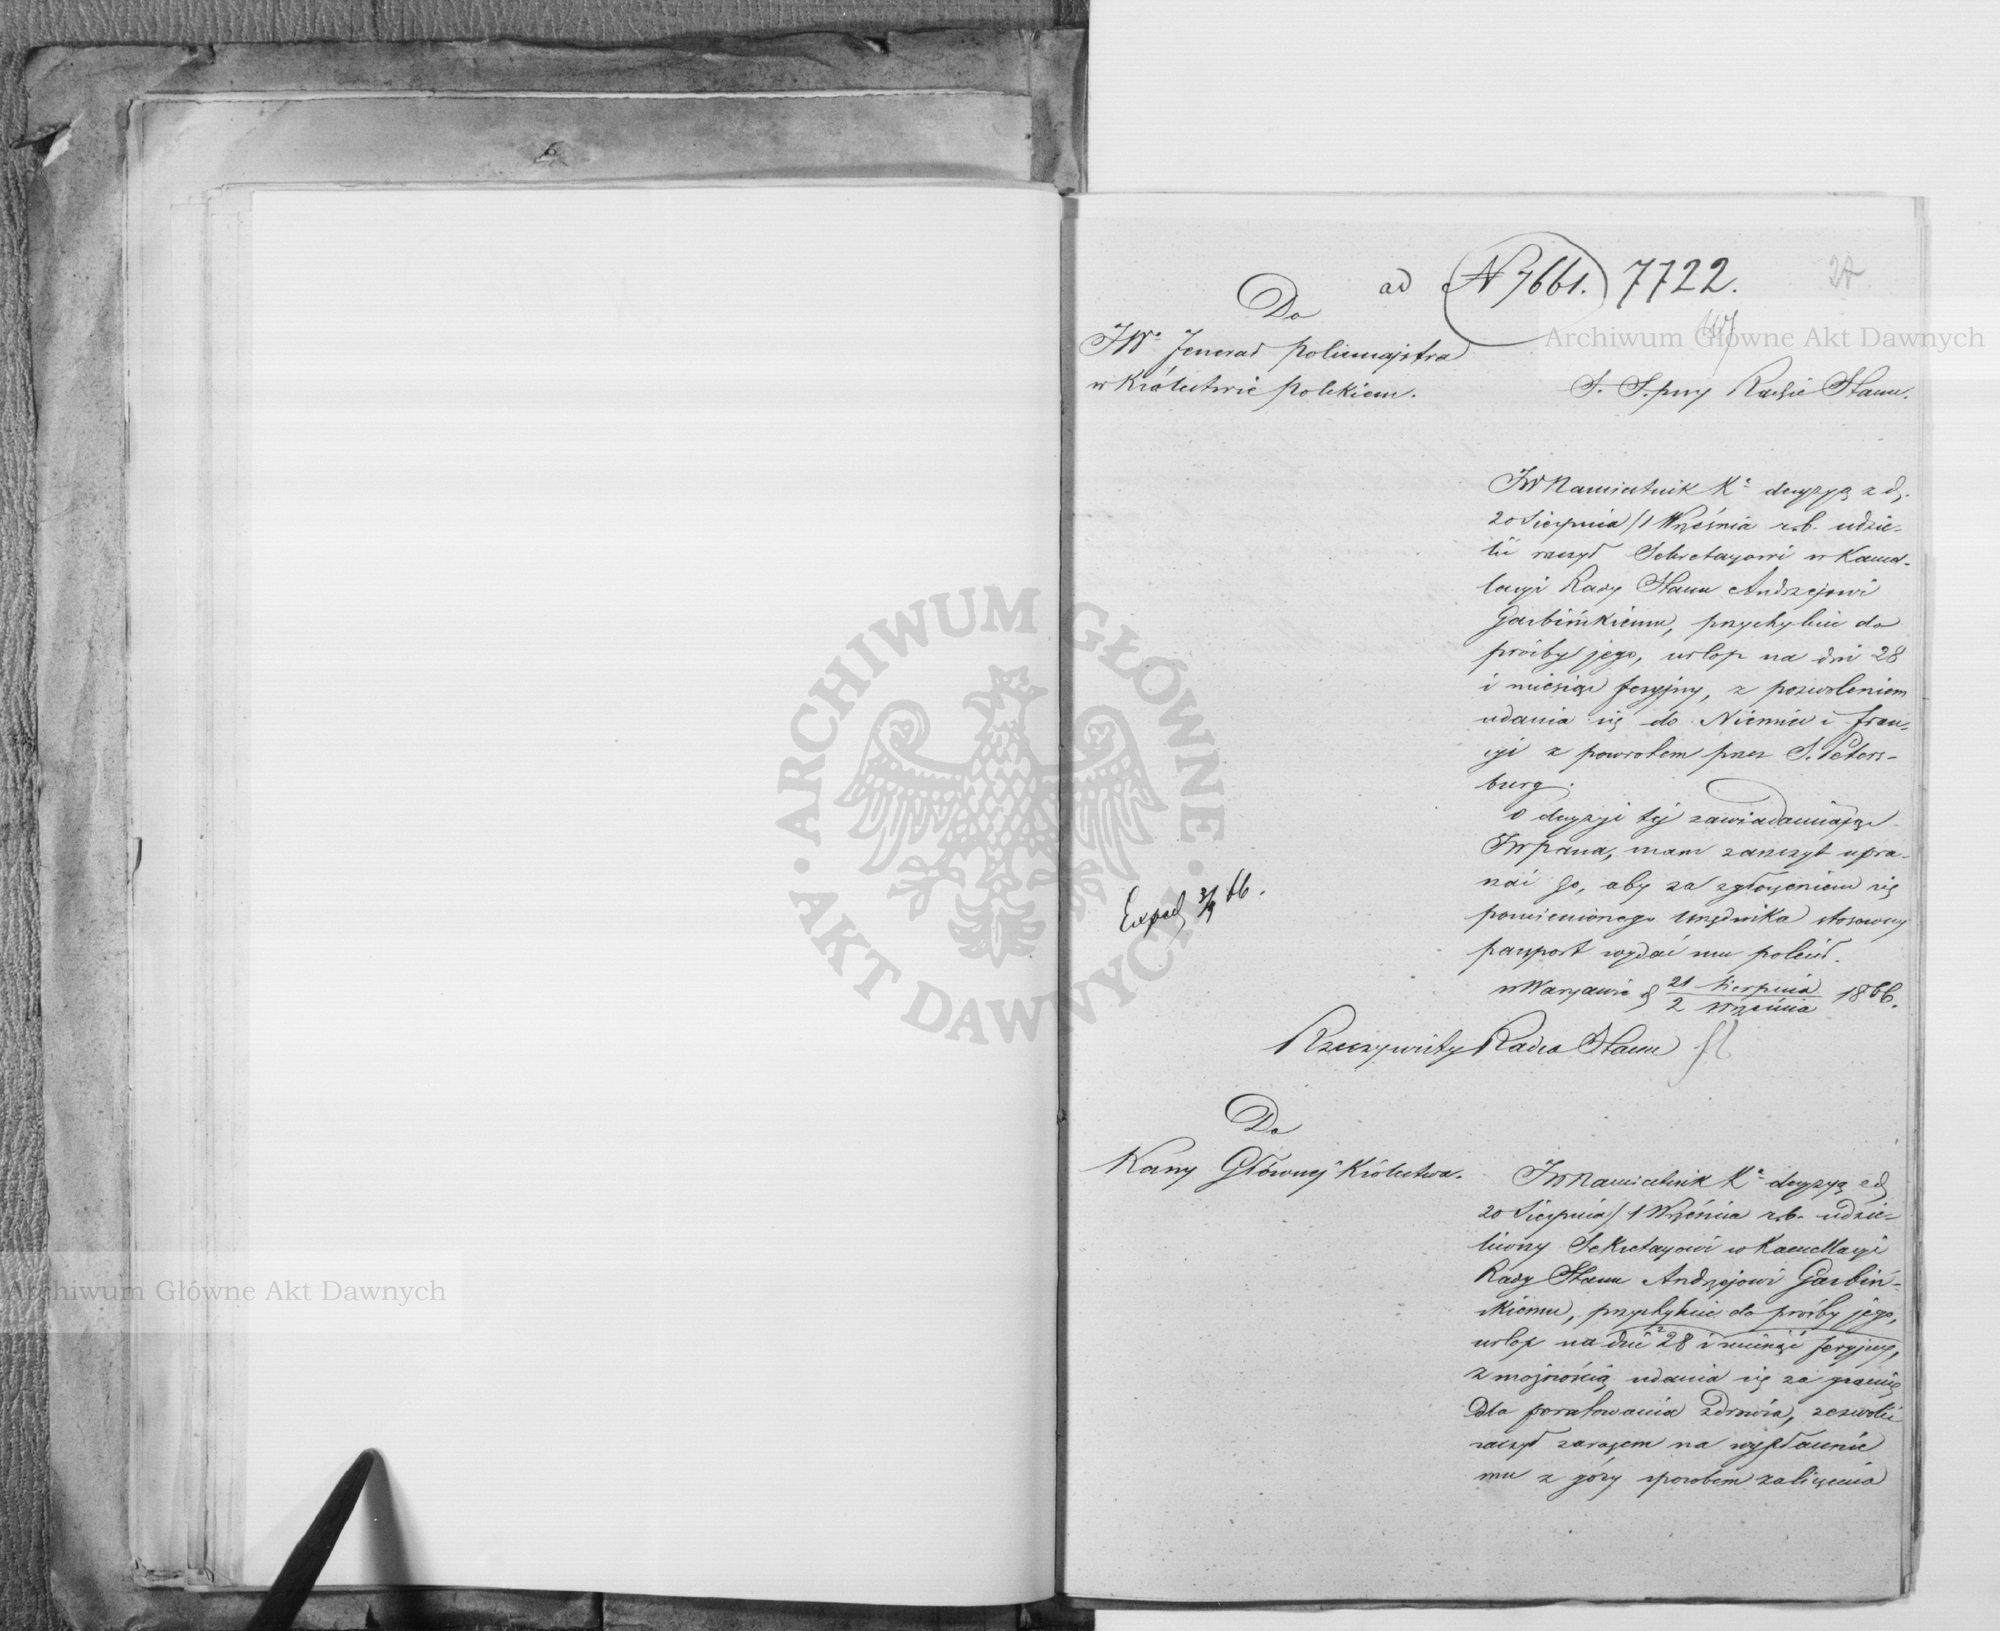 ad N 7661. 7722.
Do
JW. Jenerał Policmajstra
w Królestwie Polskiem.
S. S. przy Radzie Stanu.
JW Namiestnik K. decyzyą z d.
20 Sierpnia/1 Września r.b. udzie-
lić raczył Sekretarzowi w Kance-
laryi Rady Stanu Andrzejowi
Garbińskiemu, przychylnie do
prośby jego, urlop na dni 28
i miesiąc feryjny, z pozwoleniem
udania się do Niemiec i Fran-
cyi z powrotem przez S. Peters-
burg.
O decyzyi tej zawiadamiając
JW Pana, mam zaszczyt upra-
szać Go, aby za zgłoszeniem się
pomienionego urzędnika stosowny
paszport wydać mu polecił.
w Warszawie d. 21 Sierpnia / 2 Września 1866.
Exped 3/9 66.
Rzeczywisty Radca Stanu
Do
Kasy Głównej Królestwa.
JW Namiestnik K. decyzyą z d.
20 Sierpnia/1 Września r.b. udzie-
liwszy Sekretarzowi w Kancellaryi
Rady Stanu Andrzejowi Garbiń-
skiemu, przychylnie do prośby jego,
urlop na dni 28 i miesiąc feryjny,
z możnością udania się za granicę
dla poratowania zdrowia, zezwolić
raczył zarazem na wypłacenie
mu z góry sposobem zaliczenia
Archiwum Główne Akt Dawnych
Archiwum Główne Akt Dawnych
ARCHIWUM GŁÓWNE AKT DAWNYCH